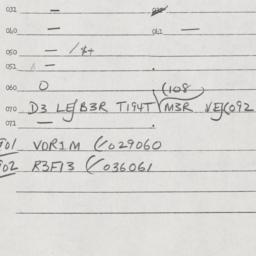 032 —
060 — 061 —
050 — /++
051 —
060 0 (108
070 D3 LEJB3R T194T M3R VEJC092
071 —
701 VOR1M (/029060
902 R3F13 (/036061